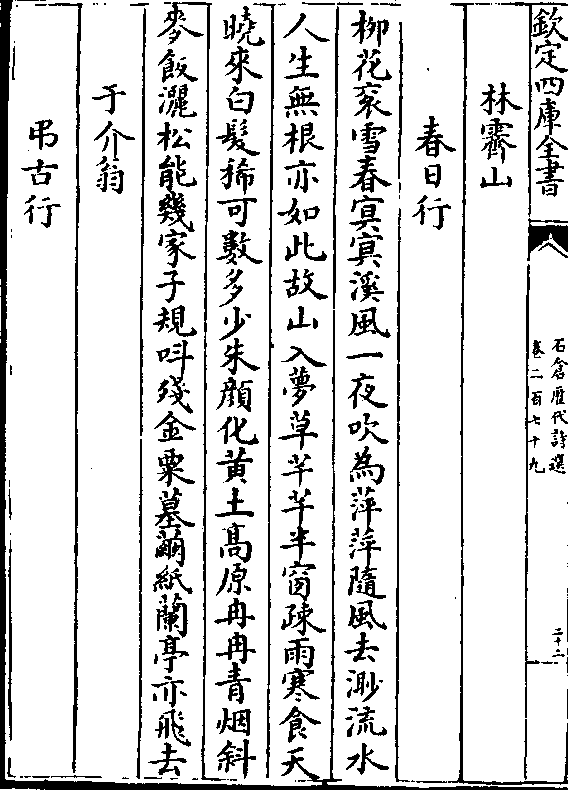 欽定四庫全書
石倉歷代詩選
卷二百七十九
二十二
林霽山
春日行
柳花衮雪春㝠㝠溪風一夜吹為萍萍隨風去渺流水
人生無根亦如此故山入夢草芊芊半窗疎雨寒食天
曉來白髮稀可數多少朱顔化黄土髙原冉冉青烟斜
麥飯灑松能幾家子規呌殘金粟墓繭紙蘭亭亦飛去
于介翁
弔古行